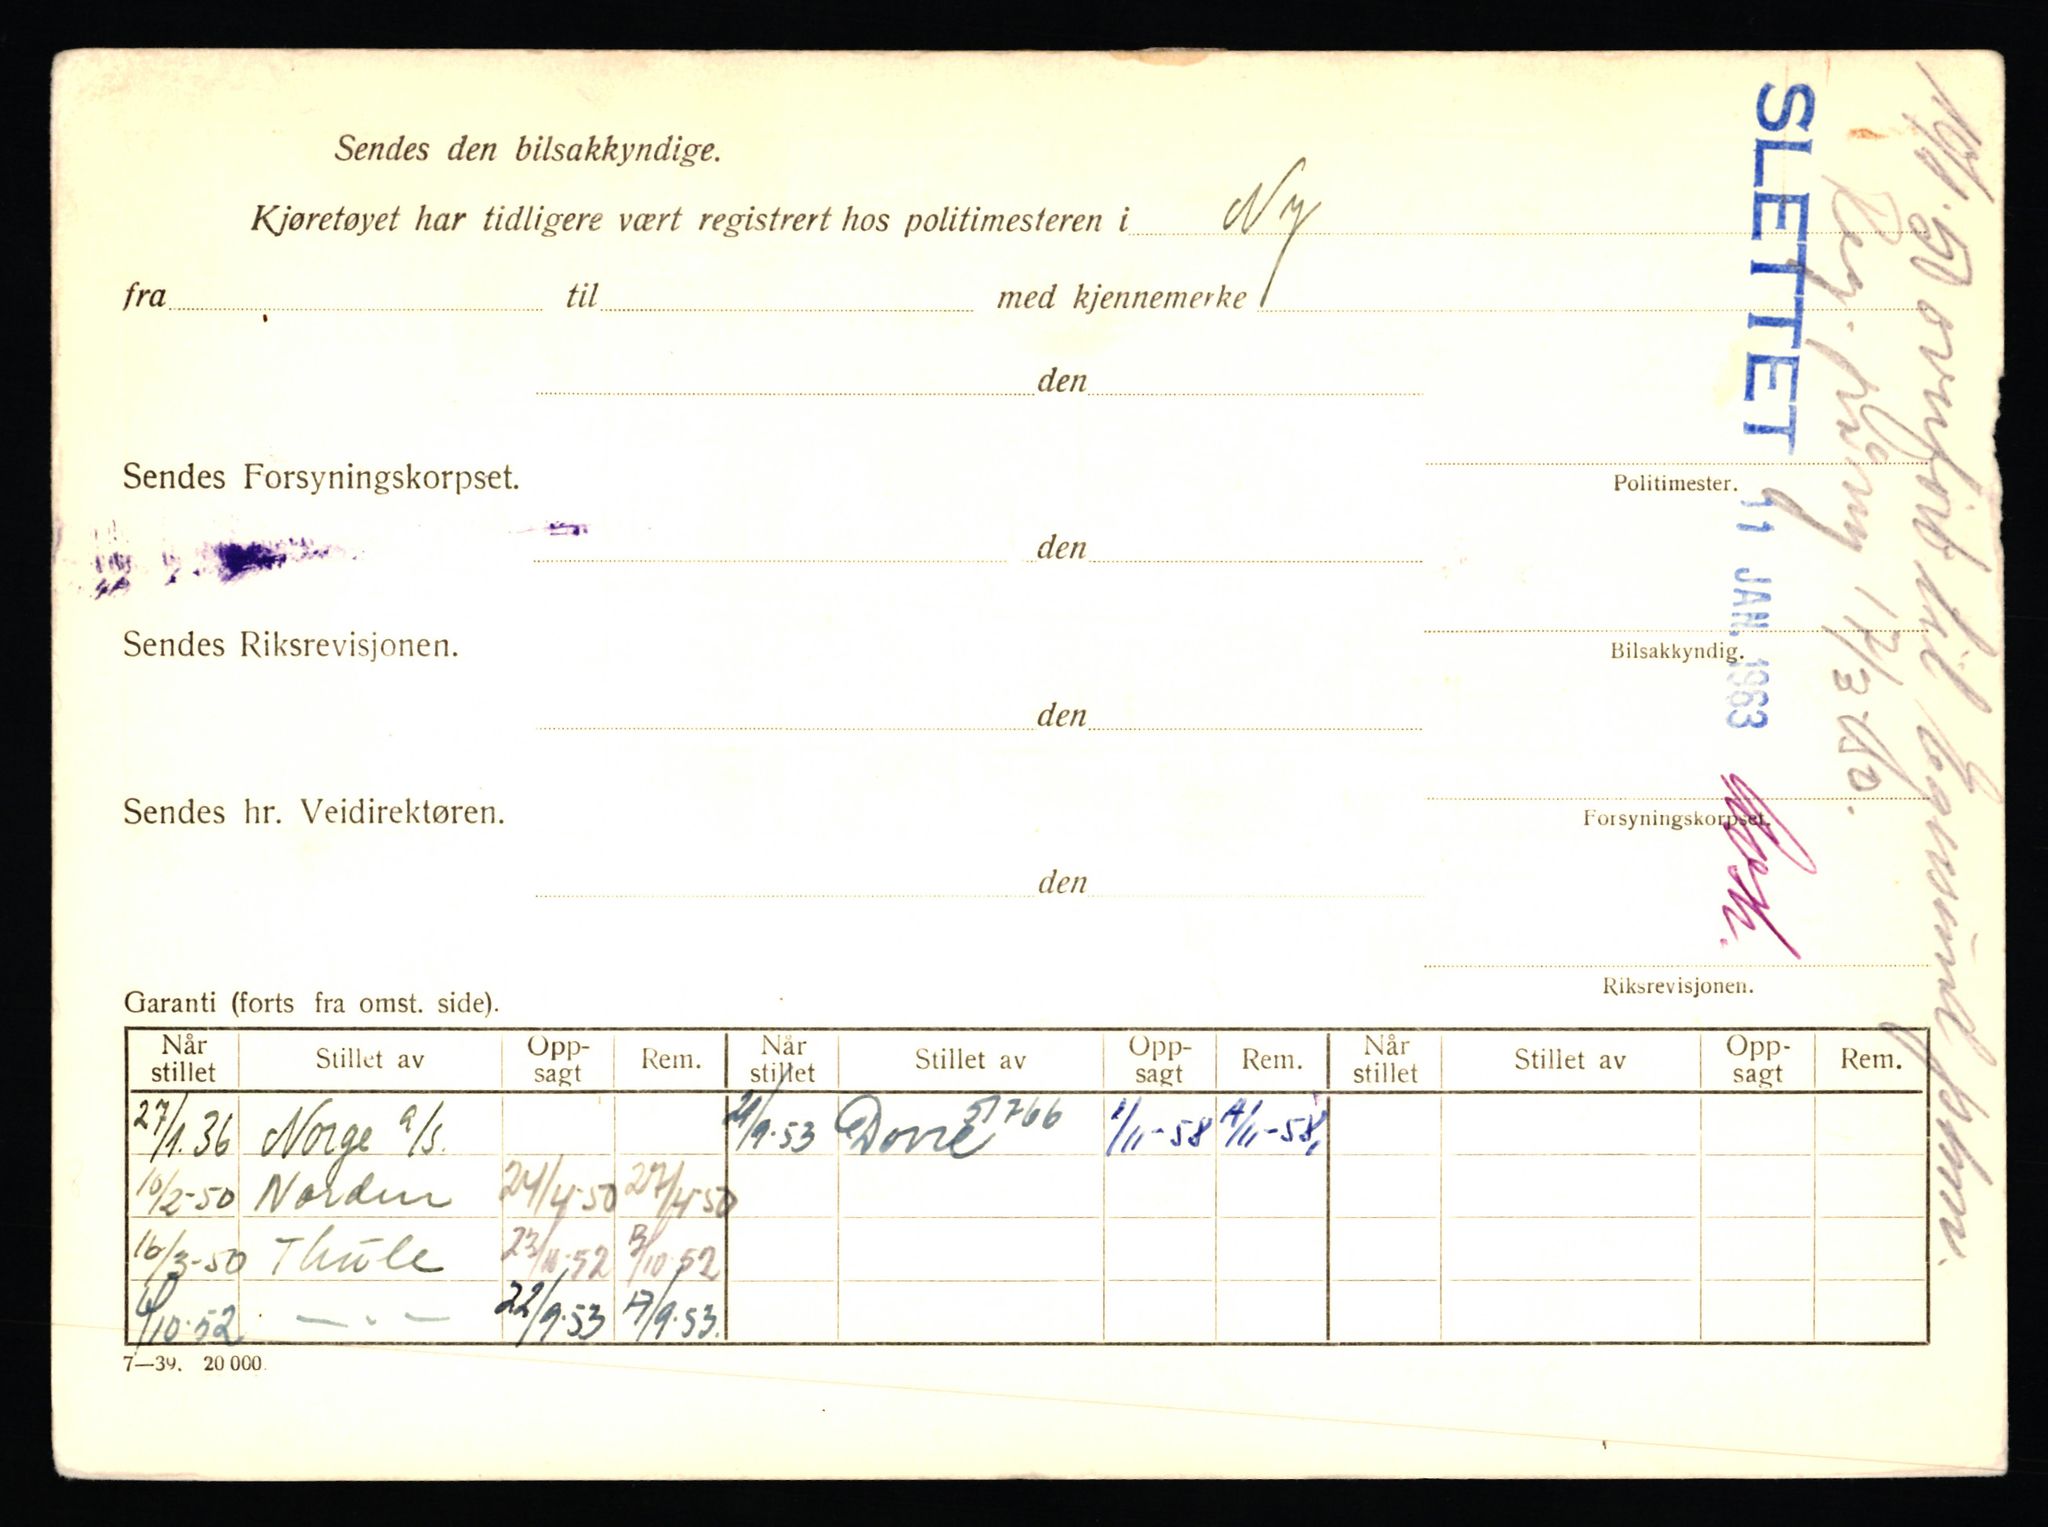 Sendes den bilsakkyndige.
Kjøretøyet har tidligere vært registrert hos politimesteren i Ny
fra til med kjennemerke
den
Sendes Forsyningskorpset.
Politimester.
den
Sendes Riksrevisjonen.
Bilsakkyndig.
den
Sendes hr. Veidirektøren.
Forsyningskorpset.
den
Riksrevisjonen.
SLETTET 11 JAN. 1963
17/3 50.
Garanti (forts fra omst. side).
Når stillet Stillet av Opp-sagt Rem. Når stillet Stillet av Opp-sagt Rem. Når stillet Stillet av Opp-sagt Rem.
27/1.36 Norge a/s. 21/9.53 Dovre 51766 1/11-58 4/11-58
10/2-50 Norden 24/4-50 27/4-50
16/3-50 Thule 23/10.52 3/10.52
/10.52 — . — 22/9.53 17/9.53.
7—39. 20 000.